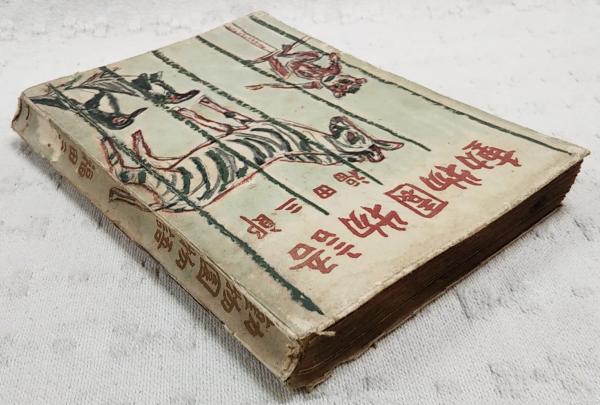 動物園物語
福田三郎
動物園物語
福田三